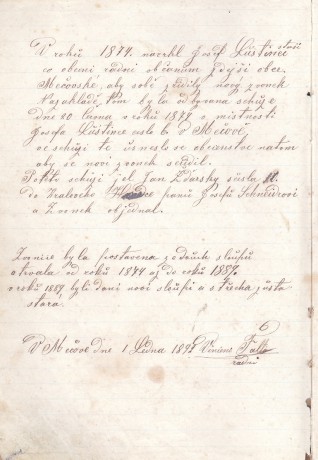 V roku 1874. navrhl Josef Luštinec starší
co obecní radní občanům zdejší obce
Mečovské, aby sobě zřídily nový zvonek
Na základě tím byla odbývana schůze
dne 20 února v roku 1874 v místnosti
Josefa Luštince číslo 6 v Mečově,
ve schůzi té usneslo se obecenstvo na tom
aby se nový zvonek zřídil.
Po této schůzi jel Jan Žďárský čísla 11.
do Kralového Hradce panu Josefu Schneidrovi
a Zvonek objednal.
Zvonice byla postavena z
a trvala od roku 1874 až do roku 1887.
v roku 1887 byli dani nové sloupi a střecha zůsta
stará.
6
V Mečově dne 1. Ledna 189 Vincenc
radní